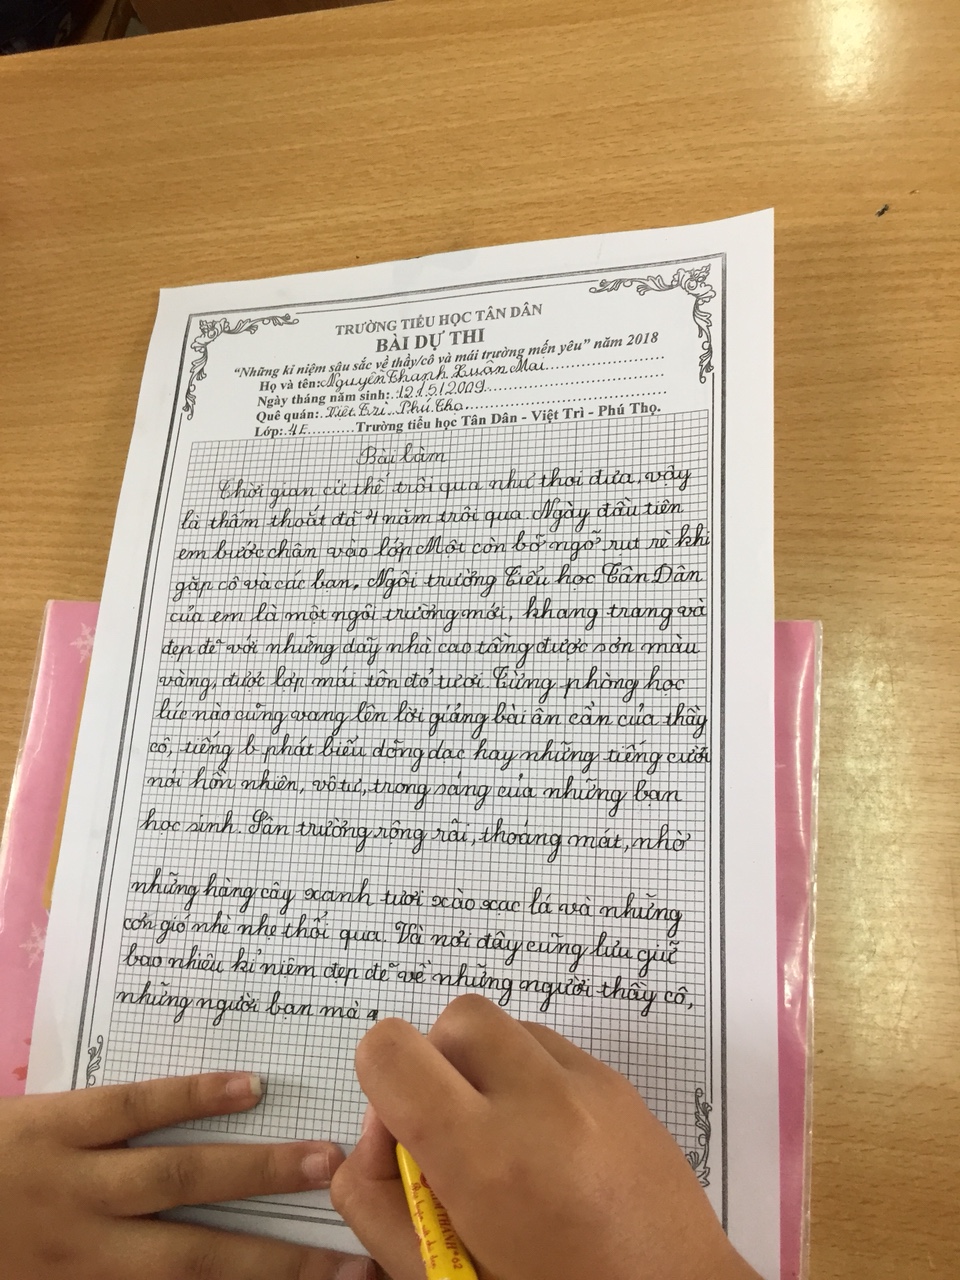 TRƯỜNG TIỂU HỌC TÂN DÂN
BÀI DỰ THI
"Những kỉ niệm sâu sắc về thầy/cô và mái trường mến yêu" năm 2018
Họ và tên: Nguyễn Thanh Xuân Mai
Ngày tháng năm sinh: 12/5/2009
Quê quán: Việt Trì - Phú Thọ
Lớp: 4E Trường tiểu học Tân Dân - Việt Trì - Phú Thọ.
Bài làm
Thời gian cứ thế trôi qua như thoi đưa, vậy
là thấm thoắt đã 4 năm trôi qua. Ngày đầu tiên
em bước chân vào lớp Một còn bỡ ngỡ rụt rè khi
gặp cô và các bạn. Ngôi trường Tiểu học Tân Dân
của em là một ngôi trường mới, khang trang và
đẹp đẽ với những dãy nhà cao tầng được sơn màu
vàng, được lợp mái tôn đỏ tươi. Từng phòng học
lúc nào cũng vang lên lời giảng bài ân cần của thầy
cô, tiếng b phát biểu dõng dạc hay những tiếng cười
nói hồn nhiên, vô tư, trong sáng của những bạn
học sinh. Sân trường rộng rãi, thoáng mát, nhờ
những hàng cây xanh tươi xào xạc lá và những
cơn gió nhè nhẹ thổi qua. Và nơi đây cũng lưu giữ
bao nhiêu kỉ niệm đẹp đẽ về những người thầy cô,
những người bạn mà